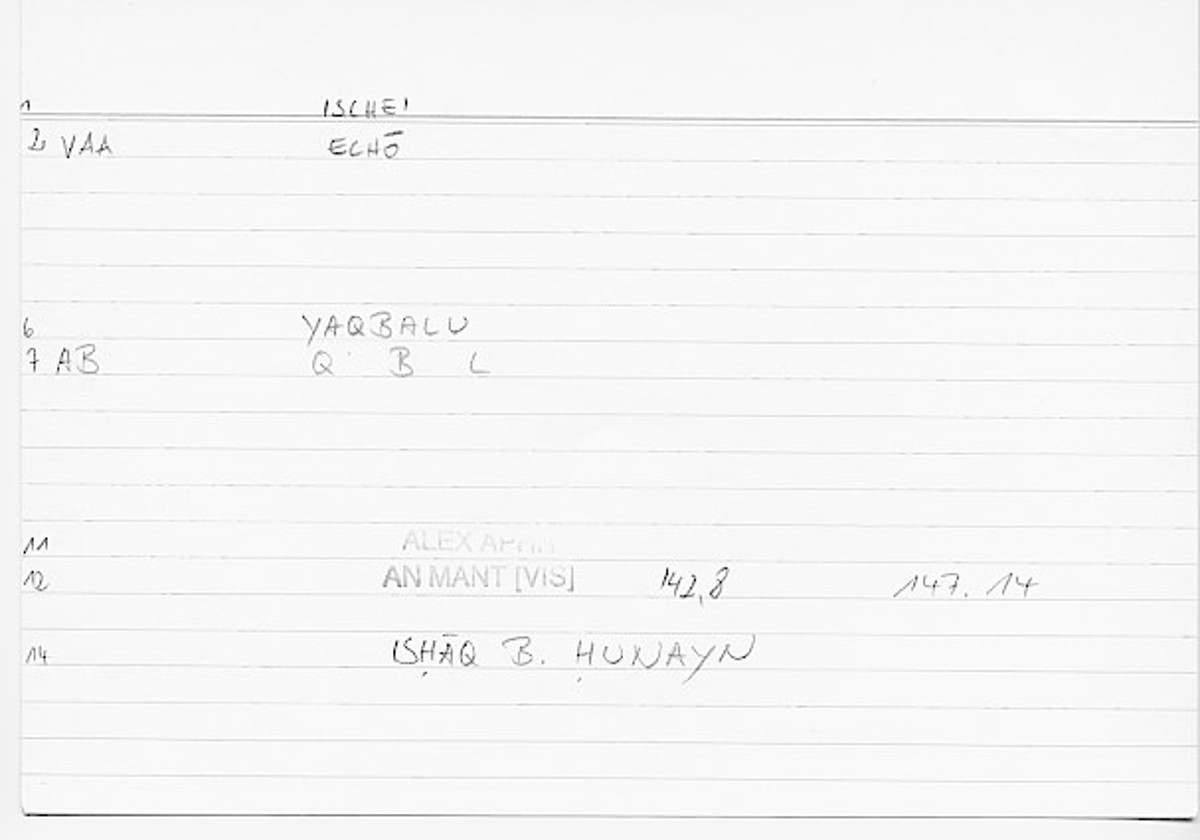 1 ISCHEI
2 VAA ECHŌ
6 YAQBALU
7 AB Q B L
11 ALEX APHR
12 AN MANT [VIS] 142,8 147. 14
14 ISḤĀQ B. ḤUNAYN